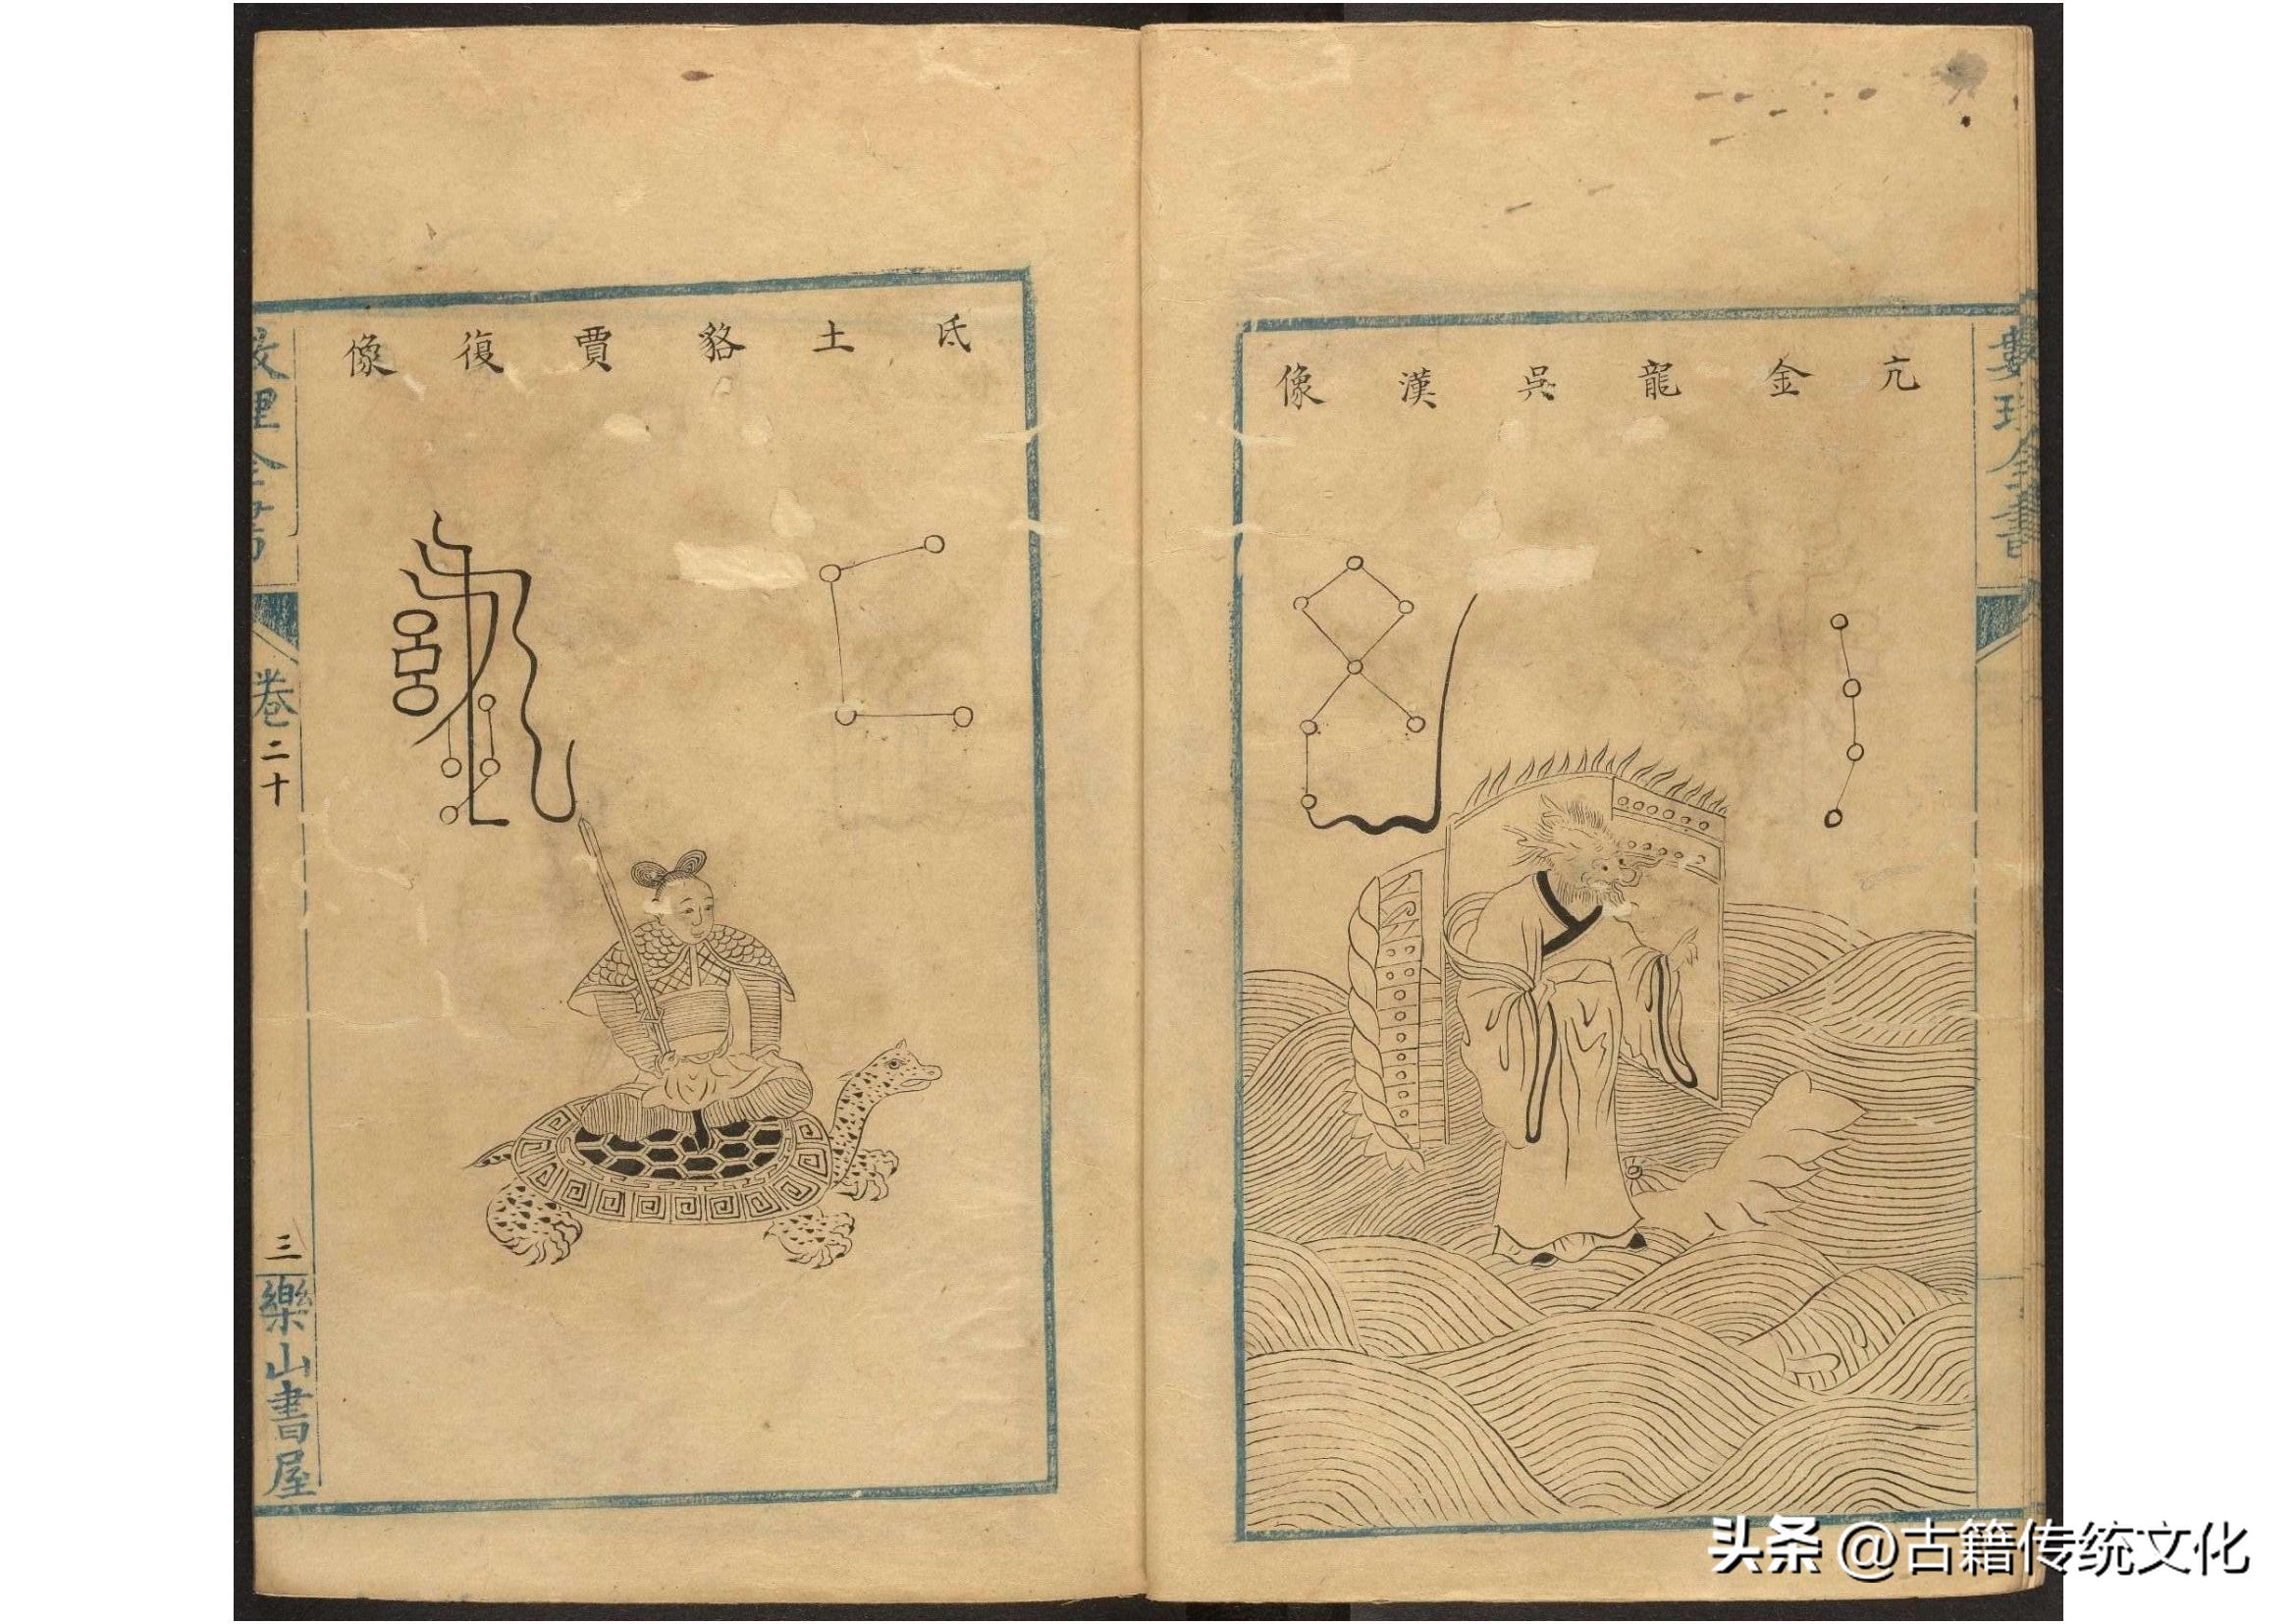 亢金龍吳漢像
數理全書
氐土貉賈復像
數理全書
卷二十
三
樂山書屋
头条 @古籍传统文化